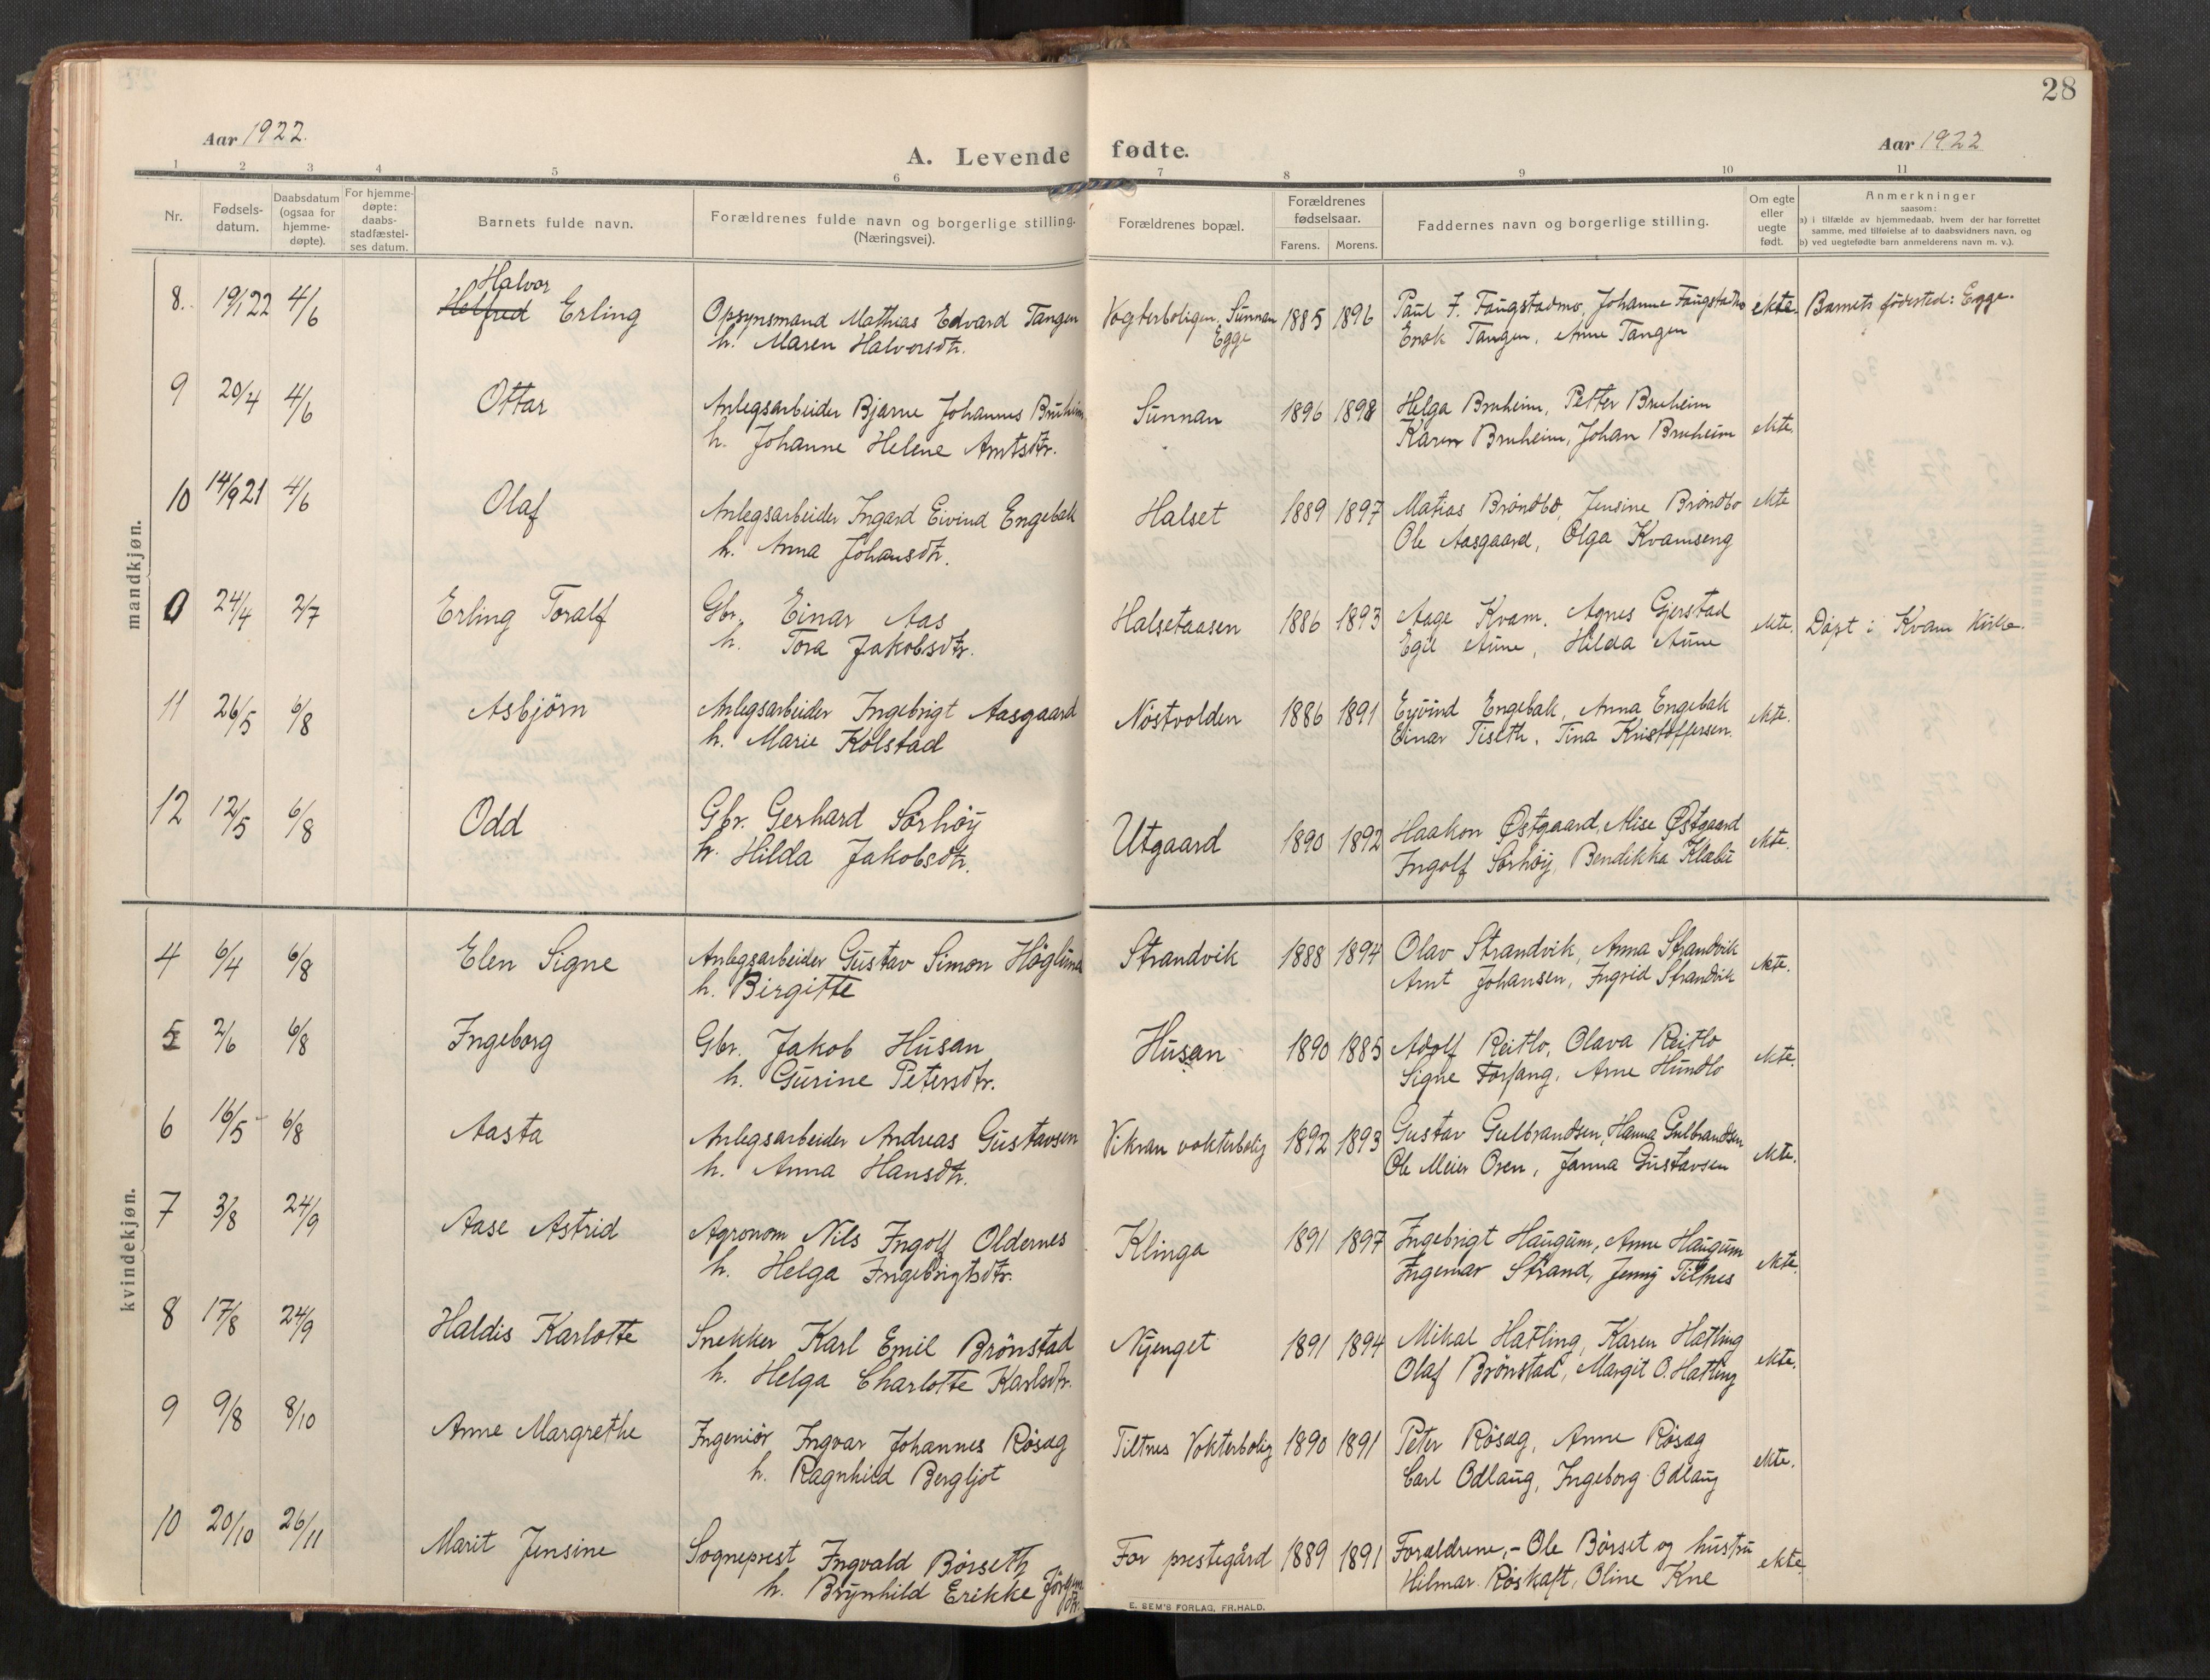 28
Aar 1922.
A. Levende fødte.
Aar 1922
1 2 3 4 5 6 7 8 9 10 11
Nr.
Fødsels-
datum.
Daabsdatum
(ogsaa for
hjemme-
døpte).
For hjemme-
døpte:
daabs-
stadfæstel-
ses datum.
Barnets fulde navn.
Forældrenes fulde navn og borgerlige stilling.
(Næringsvei).
Forældrenes bopæl.
Forældrenes
fødselsaar.
Farens. Morens.
Faddernes navn og borgerlige stilling.
Om egte
eller
uegte
født.
Anmerkninger
saasom:
a) i tilfælde av hjemmedaab, hvem der har forrettet
samme, med tilføielse af to daabsvidners navn, og
b) ved uegtefødte barn anmelderens navn m. v.).
mandkjøn.
Halvor
8. 19/1 22 4/6 Helfred Erling Opsynsmand Mathias Edvard Tangen Vogterboligen, Sunnan 1885 1896 Paul F. Faugstadmo, Johanne Faugstadmo ekte. Barnets fødested: Egge.
h. Maren Halvorsdtr. Egge Enok Tangen, Anne Tangen
9 20/4 4/6 Ottar Anlegsarbeider Bjarne Johannes Bruheim Sunnan 1896 1898 Helga Bruheim, Petter Bruheim
h. Johanne Helene Arntsdtr. Karen Bruheim, Johan Bruheim ekte.
10 14/9 21 4/6 Olaf Anlegsarbeider Ingard Eivind Engebak Halset 1889 1897 Matias Bröndbo, Jensine Bröndbo ekte
h. Anna Johansdtr. Ole Aasgaard, Olga Kvamseng
0 24/4 2/7 Erling Toralf Gbr. Einar Aas Halsetaasen 1886 1893 Aage Kvam. Agnes Gjerstad ekte. Døpt i Kvam Kirke.
h. Tora Jakobsdtr. Egil Aune, Hilda Aune
11 26/5 6/8 Asbjörn Anlegsarbeider Ingebrigt Aasgaard Nöstvolden 1886 1891 Eyvind Engebak, Anna Engebak ekte.
h. Marie Kolstad Einar Tiseth, Tina Kristoffersen.
12 12/5 6/8 Odd Gbr. Gerhard Sørhøy Utgaard 1890 1892 Haakon Østgaard, Alise Østgaard ekte.
h. Hilda Jakobsdtr. Ingolf Sørhøy, Bendikka Klæbu
kvindekjøn.
4 6/4 6/8 Elen Signe Anlegsarbeider Gustav Simon Höglund Strandvik 1888 1894 Olav Strandvik, Anna Strandvik ekte.
h. Birgitte Arnt Johansen, Ingrid Strandvik
5 2/6 6/8 Ingeborg Gbr. Jakob Husan Husan 1890 1885 Adolf Reitlo, Olava Reitlo ekte.
h. Gurine Petersdtr. Signe Forfang, Arne Hundlo
6 16/5 6/8 Aasta Anlegsarbeider Andreas Gustavsen Vikran vokterbolig 1892 1893 Gustav Gulbrandsen, Hanna Gulbrandsen ekte.
h. Anna Hansdtr. Ole Meier Oren, Janna Gustavsen
7 3/8 24/9 Aase Astrid Agronom Nils Ingolf Oldernes Klinga 1891 1897 Ingebrigt Haugum, Anne Haugum ekte.
h. Helga Ingebrigtsdtr. Ingemar Strand, Jenny Tiltnes
8 17/8 24/9 Haldis Karlotte Snekker Karl Emil Brönstad Nyenget 1891 1894 Mikal Hatling, Karen Hatling ekte.
h. Helga Charlotte Karlsdtr. Olaf Brönstad, Margit O. Hatling
9 9/8 8/10 Anne Margrethe Ingeniør Ingvar Johannes Røsæg Tiltnes Vokterbolig 1890 1891 Peter Røsæg, Anne Røsæg ekte.
h. Ragnhild Bergljot Carl Odlaug, Ingeborg Odlaug
10 20/10 26/11 Marit Jensine Sogneprest Ingvald Börseth For prestegård 1889 1891 Forældrene, - Ole Børset og hustru ekte
h. Brynhild Erikke Jörgensdtr. Hilmar Røskaft, Oline Kne
E. SEM'S FORLAG, FR.HALD.